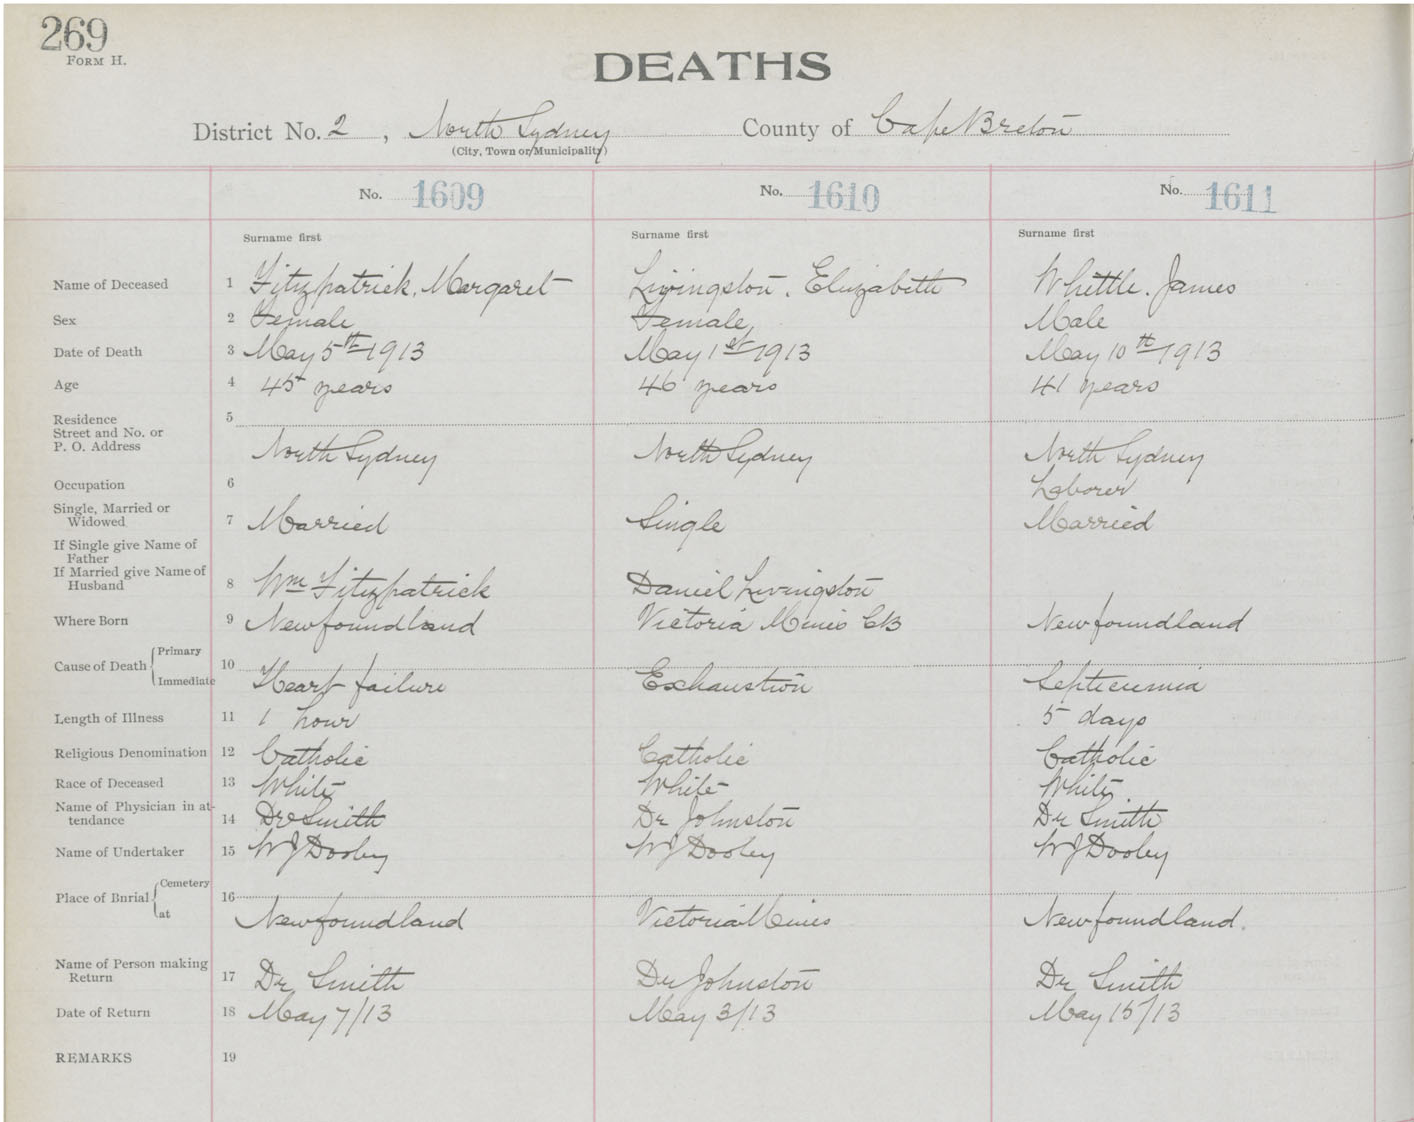 269
FORM H.
DEATHS
District No. 2, North Sydney County of Cape Breton
(City, Town or Municipality)
No. 1609 No. 1610 No. 1611
Surname first Surname first Surname first
Name of Deceased 1 Fitzpatrick, Margaret Livingston, Elizabeth Whittle, James
Sex 2 Female Female, Male
Date of Death 3 May 5th 1913 May 1st 1913 May 10th 1913
Age 4 45 years 46 years 41 years
Residence 5
Street and No. or
P. O. Address North Sydney North Sydney North Sydney
Occupation 6 Laborer
Single, Married or
Widowed 7 Married Single Married
If Single give Name of
Father
If Married give Name of
Husband 8 Wm Fitzpatrick Daniel Livingston
Where Born 9 Newfoundland Victoria Mines CB Newfoundland
Cause of Death Primary 10
Immediate Heart failure Exhaustion Septicumia
Length of Illness 11 1 hour 5 days
Religious Denomination 12 Catholic Catholic Catholic
Race of Deceased 13 White White White
Name of Physician in at-
tendance 14 Dr Smith Dr Johnston Dr Smith
Name of Undertaker 15 WJ Dooley WJ Dooley WJ Dooley
Place of Burial Cemetery 16
at Newfoundland Victoria Mines Newfoundland.
Name of Person making
Return 17 Dr Smith Dr Johnston Dr Smith
Date of Return 18 May 7/13 May 3/13 May 15/13
REMARKS 19